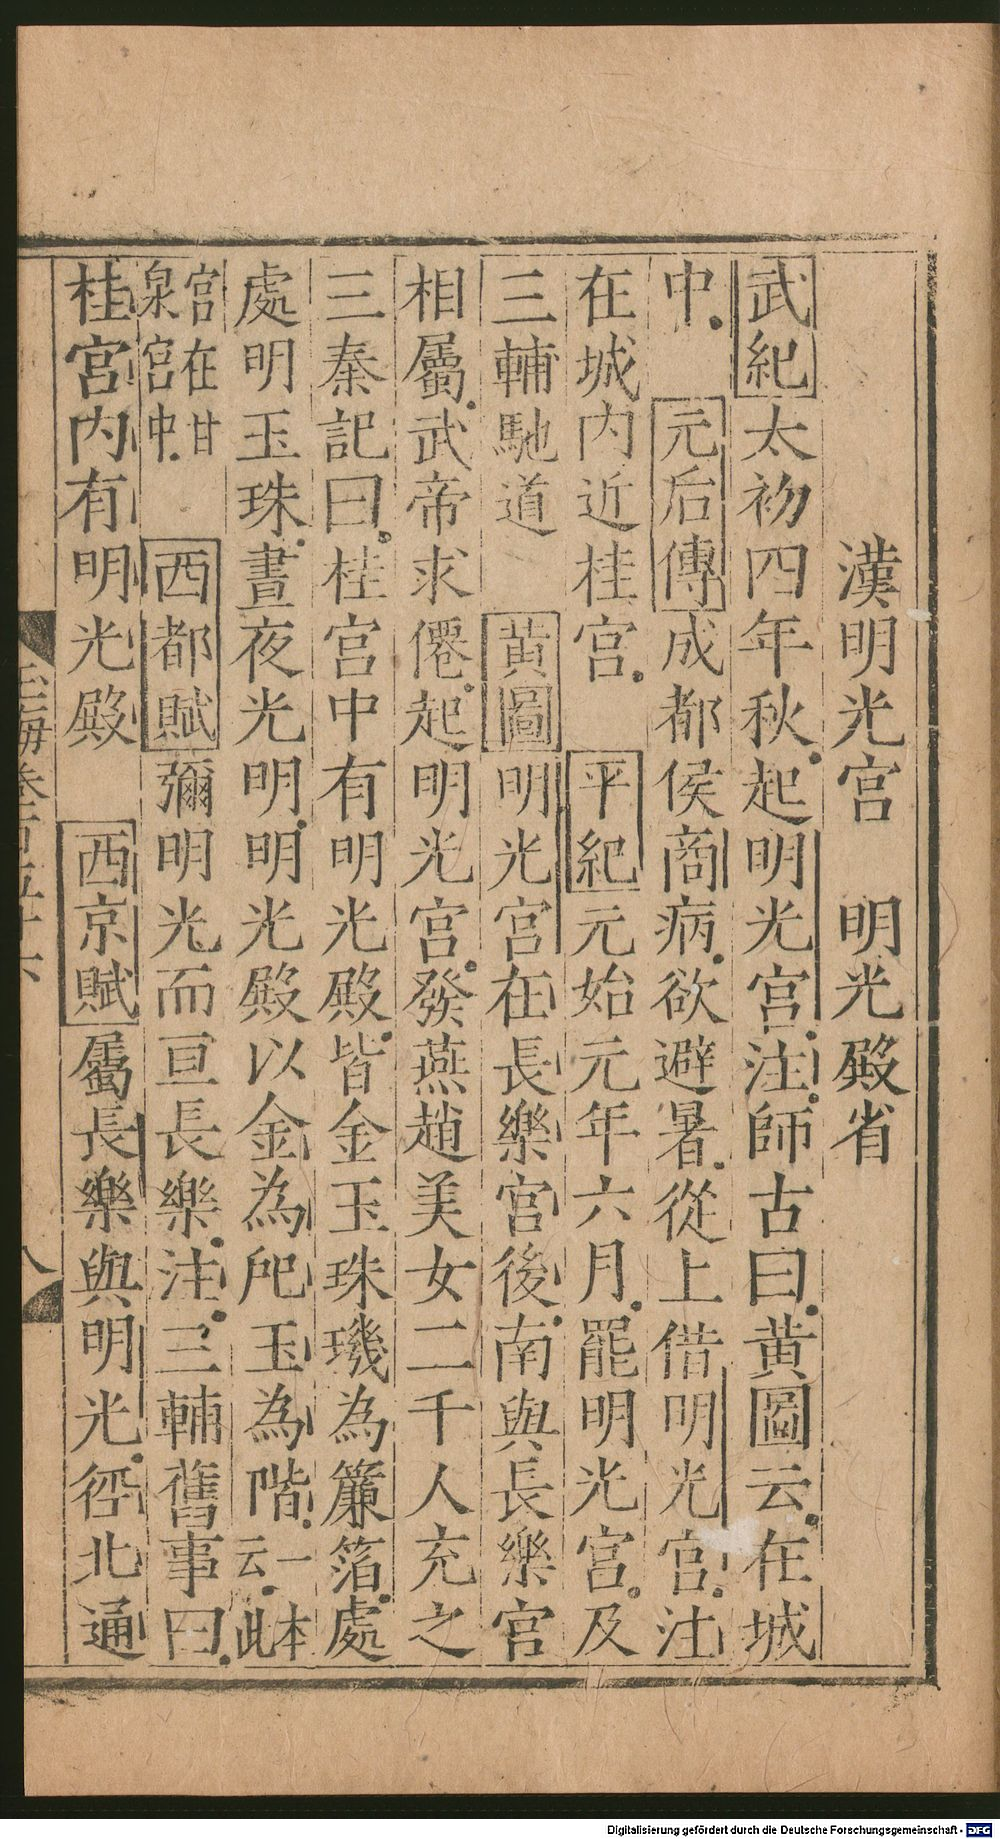 漢明光宮　明光殿省
武紀太初四年秋起明光宮注師古曰黄圖云在城
中　元后傳成都侯商病欲避暑從上借明光宮注
在城内近桂宮　平紀元始元年六月罷明光宮及
三輔馳道　黄圖明光宮在長樂宮後南與長樂宮
相屬武帝求僊起明光宮發燕趙美女二千人充之
三秦記曰桂宮中有明光殿皆金玉珠璣為簾箔處
處明玉珠晝夜光明明光殿以金為戺玉為階一本云此
宮在甘泉宮中　西都賦彌明光而亘長樂注三輔舊事曰
桂宮内有明光殿　西京賦屬長樂與明光徑北通
玉海卷百五十六
八
Digitalisierung gefördert durch die Deutsche Forschungsgemeinschaft - DFG